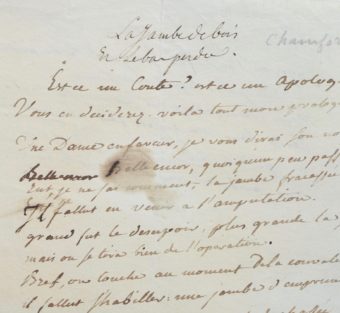 La Jambe de bois
et le bas perdu.
Chamfor
Est ce un Conte ? est ce un Apolog
Vous en deciderez. voila tout mon prolog
Une Dame en faveur, je vous dirai son no
Belle encor, quoiqu'un peu pass
Eut, je ne sai comment, la jambe fracassé
Il fallut en venir a l'amputation.
grand fut le desespoir, plus grande la
mais on se tira bien de l'operation.
Bref, on touche au moment De la convale
il fallut s'habiller : une jambe d'emprun